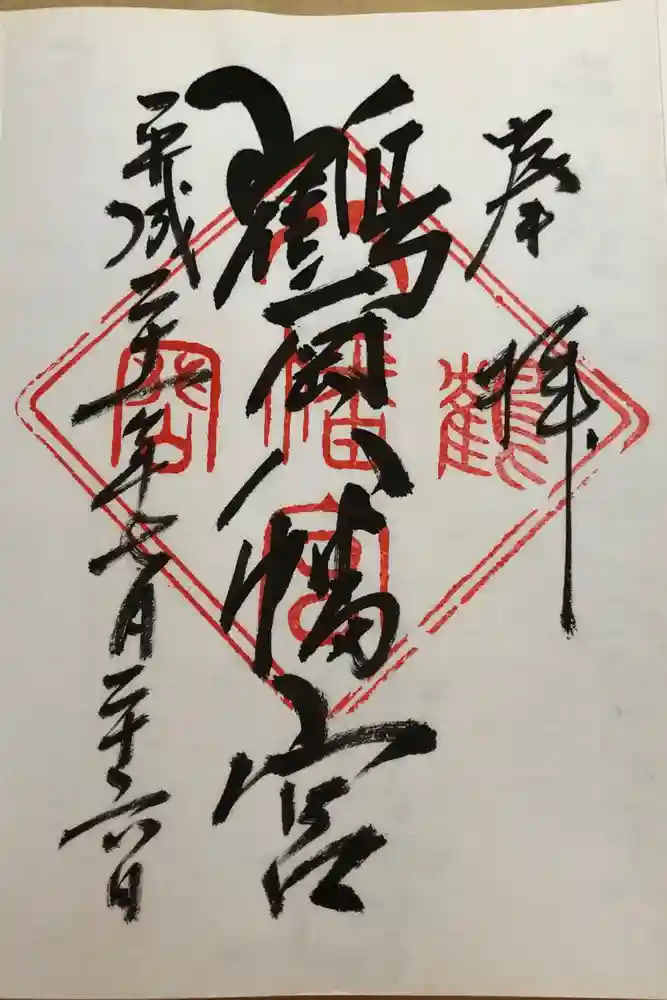 奉拝
鶴岡八幡宮
平成二十二年七月二十六日
鶴岡八幡宮